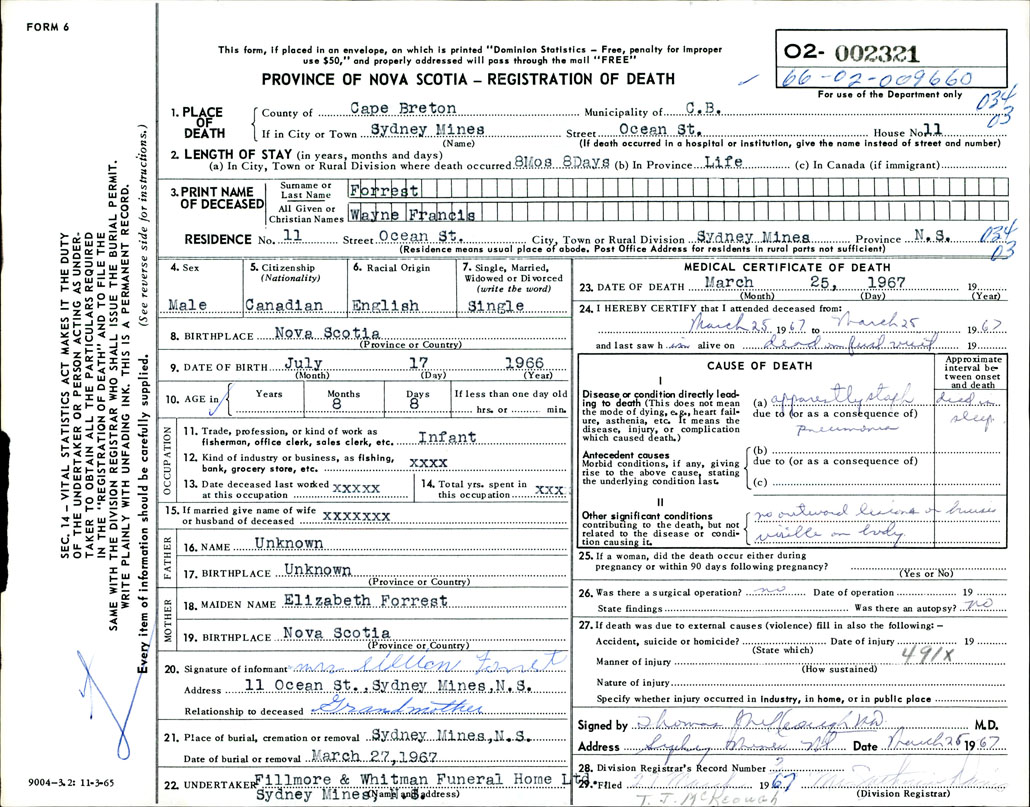 FORM 6
This form, if placed in an envelope, on which is printed "Dominion Statistics – Free, penalty for improper
use $50," and properly addressed will pass through the mail "FREE"
PROVINCE OF NOVA SCOTIA – REGISTRATION OF DEATH
02- 002321
66-02-009660
For use of the Department only
034
03
1. PLACE OF DEATH
County of Cape Breton Municipality of C.B.
If in City or Town Sydney Mines Street Ocean St. House No. 11
(Name) (If death occurred in a hospital or institution, give the name instead of street and number)
2. LENGTH OF STAY (in years, months and days)
(a) In City, Town or Rural Division where death occurred 8Mos 8Days (b) In Province Life (c) In Canada (if immigrant)
3. PRINT NAME OF DECEASED
Surname or Last Name Forrest
All Given or Christian Names Wayne Francis
RESIDENCE No. 11 Street Ocean St. City, Town or Rural Division Sydney Mines Province N.S.
034
03
(Residence means usual place of abode. Post Office Address for residents in rural parts not sufficient)
4. Sex
Male
5. Citizenship
(Nationality)
Canadian
6. Racial Origin
English
7. Single, Married,
Widowed or Divorced
(write the word)
Single
8. BIRTHPLACE Nova Scotia
(Province or Country)
9. DATE OF BIRTH July 17 1966
(Month) (Day) (Year)
10. AGE in
Years Months Days If less than one day old
8 8 hrs. or min.
OCCUPATION
11. Trade, profession, or kind of work as
fisherman, office clerk, sales clerk, etc. Infant
12. Kind of industry or business, as fishing,
bank, grocery store, etc. xxxx
13. Date deceased last worked
at this occupation xxxxx
14. Total yrs. spent in
this occupation xxx
15. If married give name of wife
or husband of deceased xxxxxxx
FATHER
16. NAME Unknown
17. BIRTHPLACE Unknown
(Province or Country)
MOTHER
18. MAIDEN NAME Elizabeth Forrest
19. BIRTHPLACE Nova Scotia
(Province or Country)
20. Signature of informant Mrs Forrest
Address 11 Ocean St.,Sydney Mines,N.S.
Relationship to deceased Grandmother
21. Place of burial, cremation or removal Sydney Mines,N.S.
Date of burial or removal March 27,1967
22. UNDERTAKER Fillmore & Whitman Funeral Home Ltd.
Sydney Mines, N.S.
(Name and address)
MEDICAL CERTIFICATE OF DEATH
23. DATE OF DEATH March 25, 1967 19
(Month) (Day) (Year)
24. I HEREBY CERTIFY that I attended deceased from:
March 25 1967 to March 25 1967
and last saw h im alive on dead on first visit 19
CAUSE OF DEATH
Approximate
interval be-
tween onset
and death
I
Disease or condition directly lead-
ing to death (This does not mean
the mode of dying, e.g., heart fail-
ure, asthenia, etc. It means the
disease, injury, or complication
which caused death.)
(a) apparently staph
due to (or as a consequence of)
pneumonia
died in
sleep
Antecedent causes
Morbid conditions, if any, giving
rise to the above cause, stating
the underlying condition last.
(b)
due to (or as a consequence of)
(c)
II
Other significant conditions
contributing to the death, but not
related to the disease or condi-
tion causing it.
no outward lesions or bruises
visible on body
25. If a woman, did the death occur either during
pregnancy or within 90 days following pregnancy?
(Yes or No)
26. Was there a surgical operation? no Date of operation 19
State findings Was there an autopsy? no
27. If death was due to external causes (violence) fill in also the following: –
Accident, suicide or homicide? Date of injury 19
(State which)
Manner of injury 491X
(How sustained)
Nature of injury
Specify whether injury occurred in industry, in home, or in public place
Signed by Thomas McKeough MD M.D.
Address Sydney Mines NS Date March 25 1967
28. Division Registrar's Record Number
29. Filed 1967
(Division Registrar)
T. J. McKeough
SEC. 14 – VITAL STATISTICS ACT MAKES IT THE DUTY
OF THE UNDERTAKER OR PERSON ACTING AS UNDER-
TAKER TO OBTAIN ALL THE PARTICULARS REQUIRED
IN THE "REGISTRATION OF DEATH" AND TO FILE THE
SAME WITH THE DIVISION REGISTRAR WHO SHALL ISSUE THE BURIAL PERMIT.
WRITE PLAINLY WITH UNFADING INK. THIS IS A PERMANENT RECORD.
Every item of information should be carefully supplied. (See reverse side for instructions.)
9004-3.2: 11-3-65